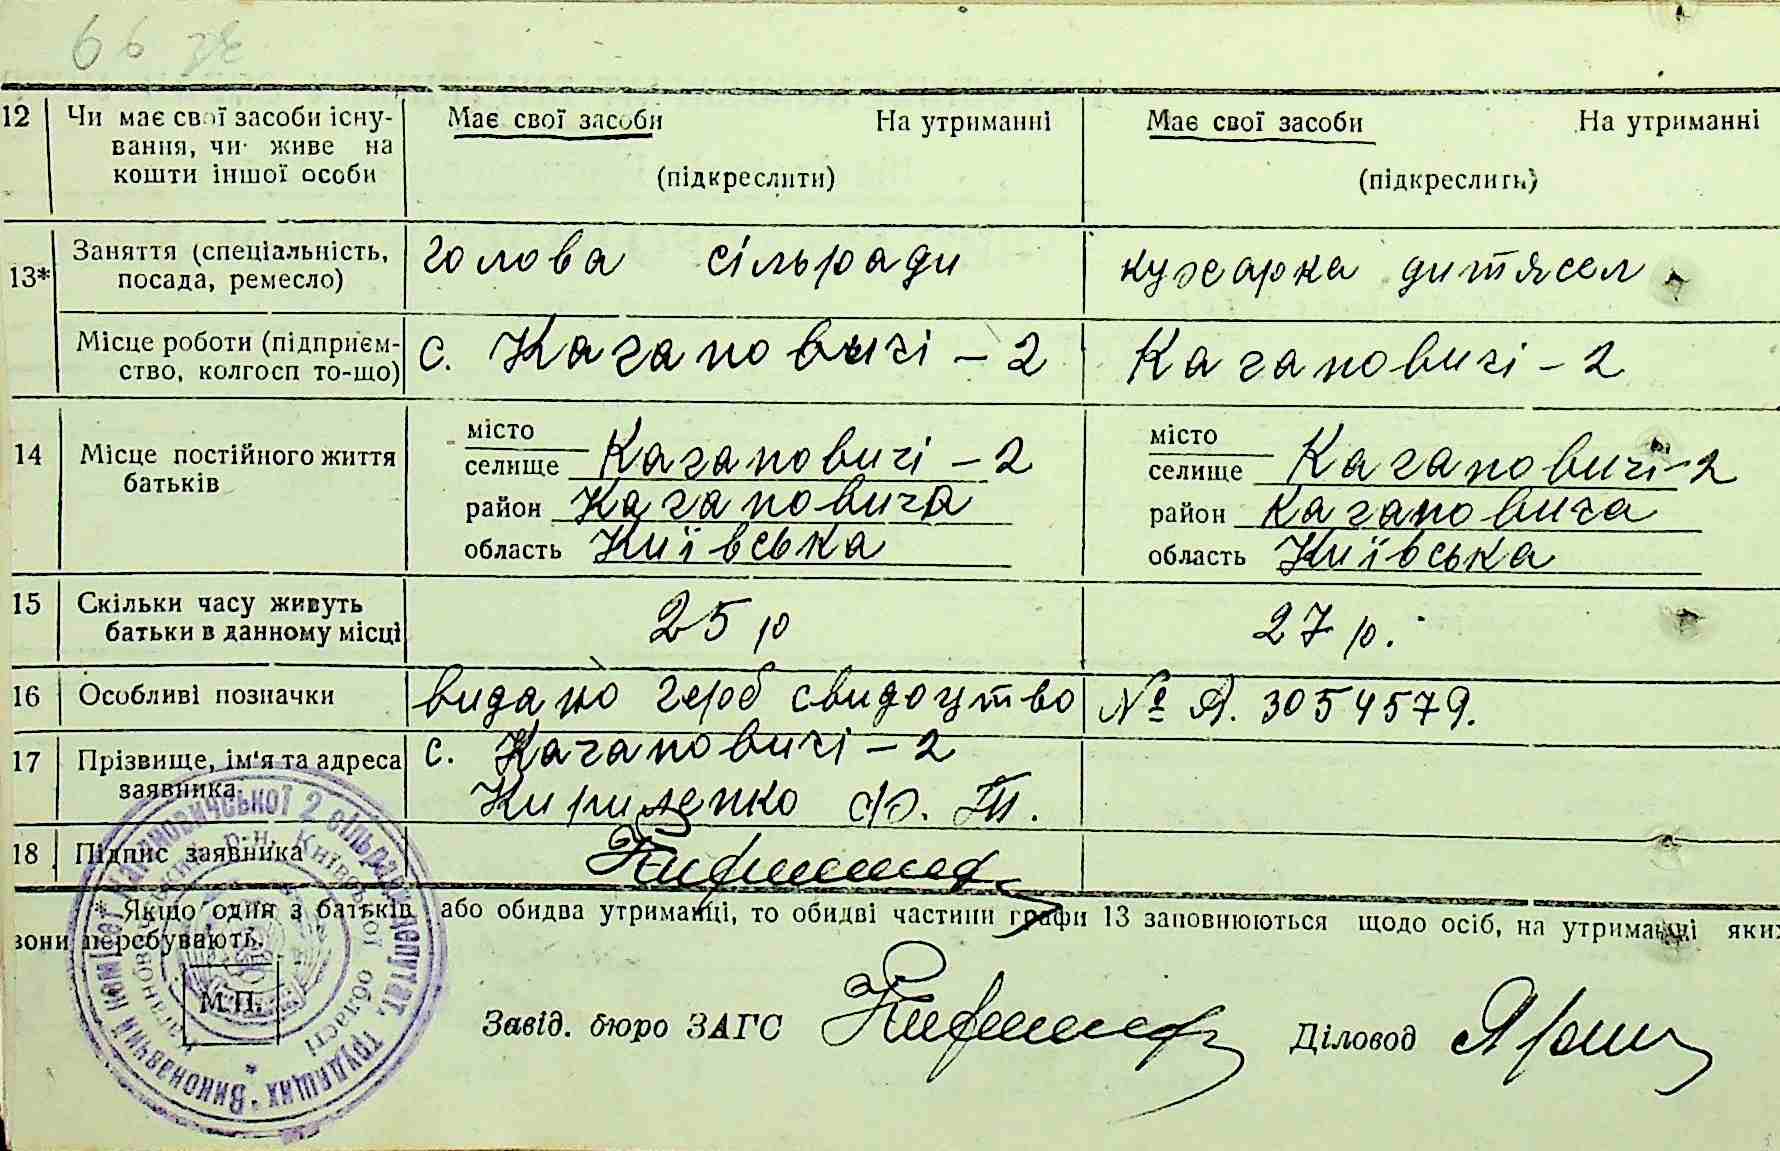 66
12 Чи має свої засоби існу- Має свої засоби На утриманні Має свої засоби На утриманні
вання, чи живе на
кошти іншої особи (підкреслити) (підкреслить)
13* Заняття (спеціальність, голова сільради кухарка дитясел
посада, ремесло)
Місце роботи (підприєм- с. Кагановичі - 2 Кагановичі - 2
ство, колгосп то-що)
14 Місце постійного життя місто місто
батьків селище Кагановичі - 2 селище Кагановичі - 2
район Кагановича район Кагановича
область Київська область Київська
15 Скільки часу живуть 25 р 27 р.
батьки в данному місці
16 Особливі позначки видано герб свидоцтво № Я. 3054579.
17 Прізвище, ім'я та адреса с. Кагановичі - 2
заявника Кириленко Ф. Т.
18 Підпис заявника
* Якщо один з батьків або обидва утриманці, то обидві частини графи 13 заповнюються щодо осіб, на утриманні яких
вони перебувають.
М.П.
Завід. бюро ЗАГС Діловод
Виконавчий комітет Кагановичської 2 сільради депутат. трудящих
Кагановичського р-ну, Київської області